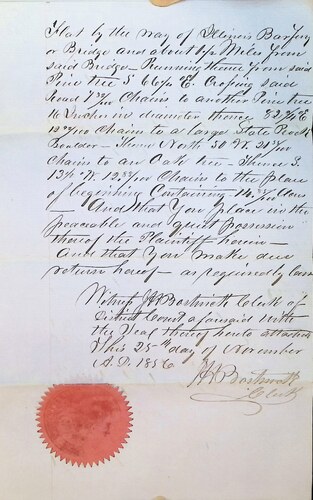 Flat by the way of Illinois Bar
or Bridge and about 1/2 Mile from
said Bridge - Running thence from said
Pine tree S 66 E. Crossing said
Road Chains to another Pine tree
16 Inches in diameter thence
Chains to a large Slate Rock
Boulder - Thence North 50 W.
Chains to an Oak tree - Thence S.
W. Chains to the place
of begining Containing
And that You place in the
peacable and quiet possession
thereof the Plaintiff herein -
And that You make due
return hereof - as required by law
Witness Bostwick Clerk of
District Court aforesaid With
the Seal thereof hereto attached
this 25th day of November
A.D. 1856
Bostwick
Clerk